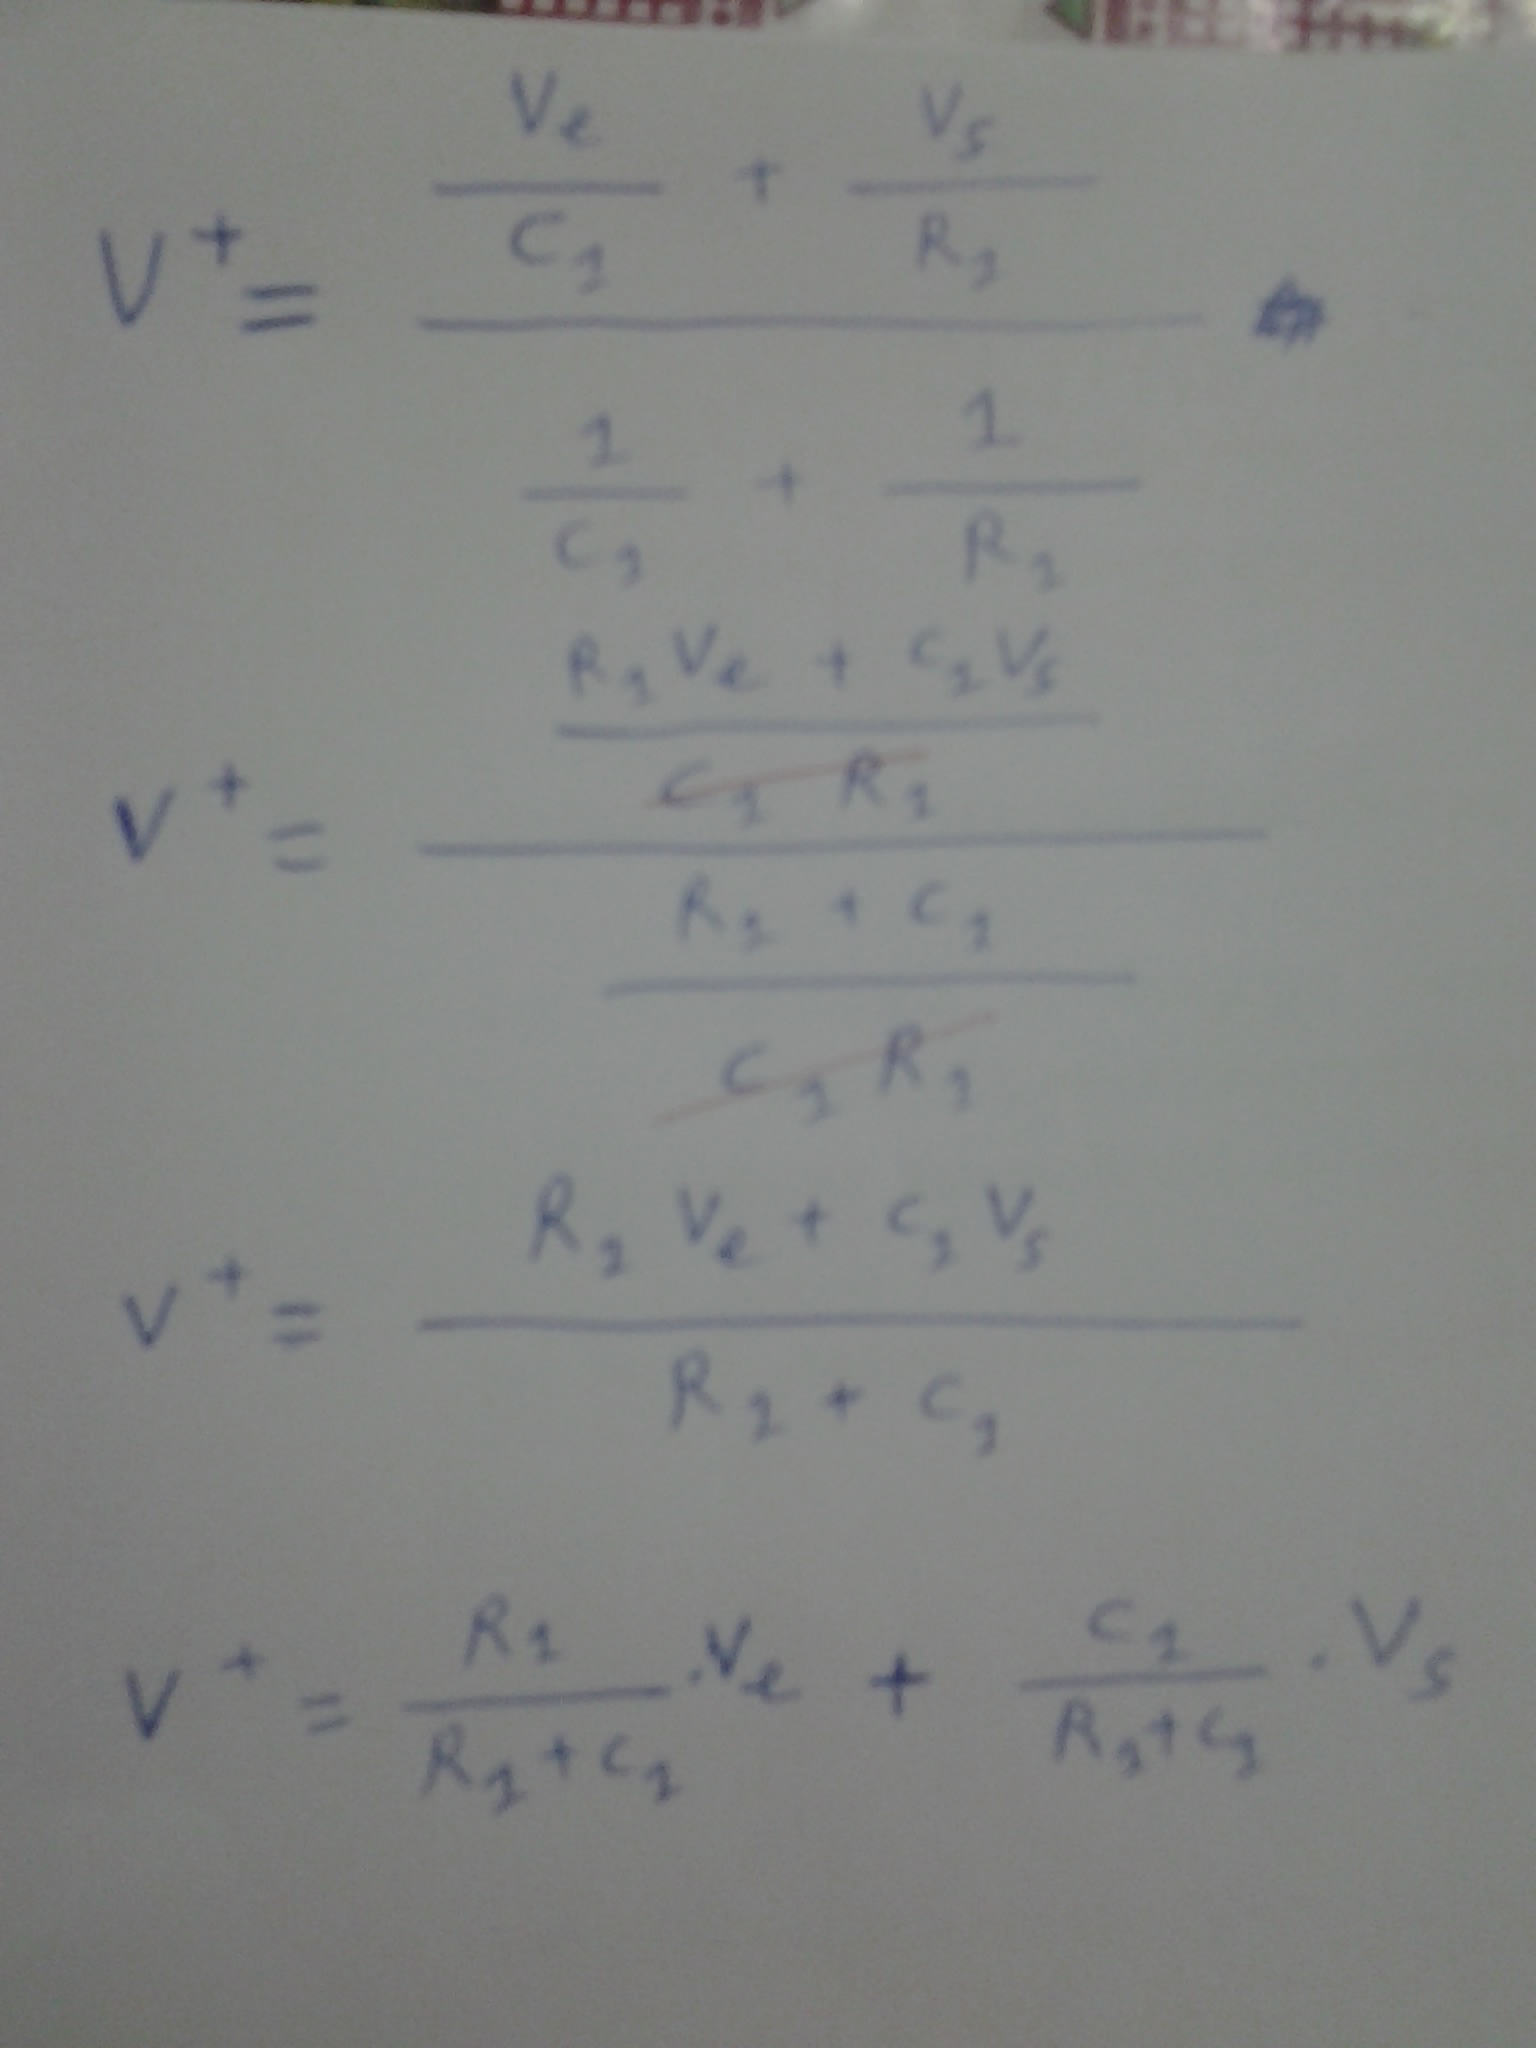 V⁺ = (Ve/C₁ + Vs/R₁) / (1/C₁ + 1/R₁)
V⁺ = ((R₁Ve + C₁Vs)/(C₁R₁)) / ((R₁ + C₁)/(C₁R₁))
V⁺ = (R₁Ve + C₁Vs) / (R₁ + C₁)
V⁺ = R₁/(R₁+C₁) . Ve + C₁/(R₁+C₁) . Vs